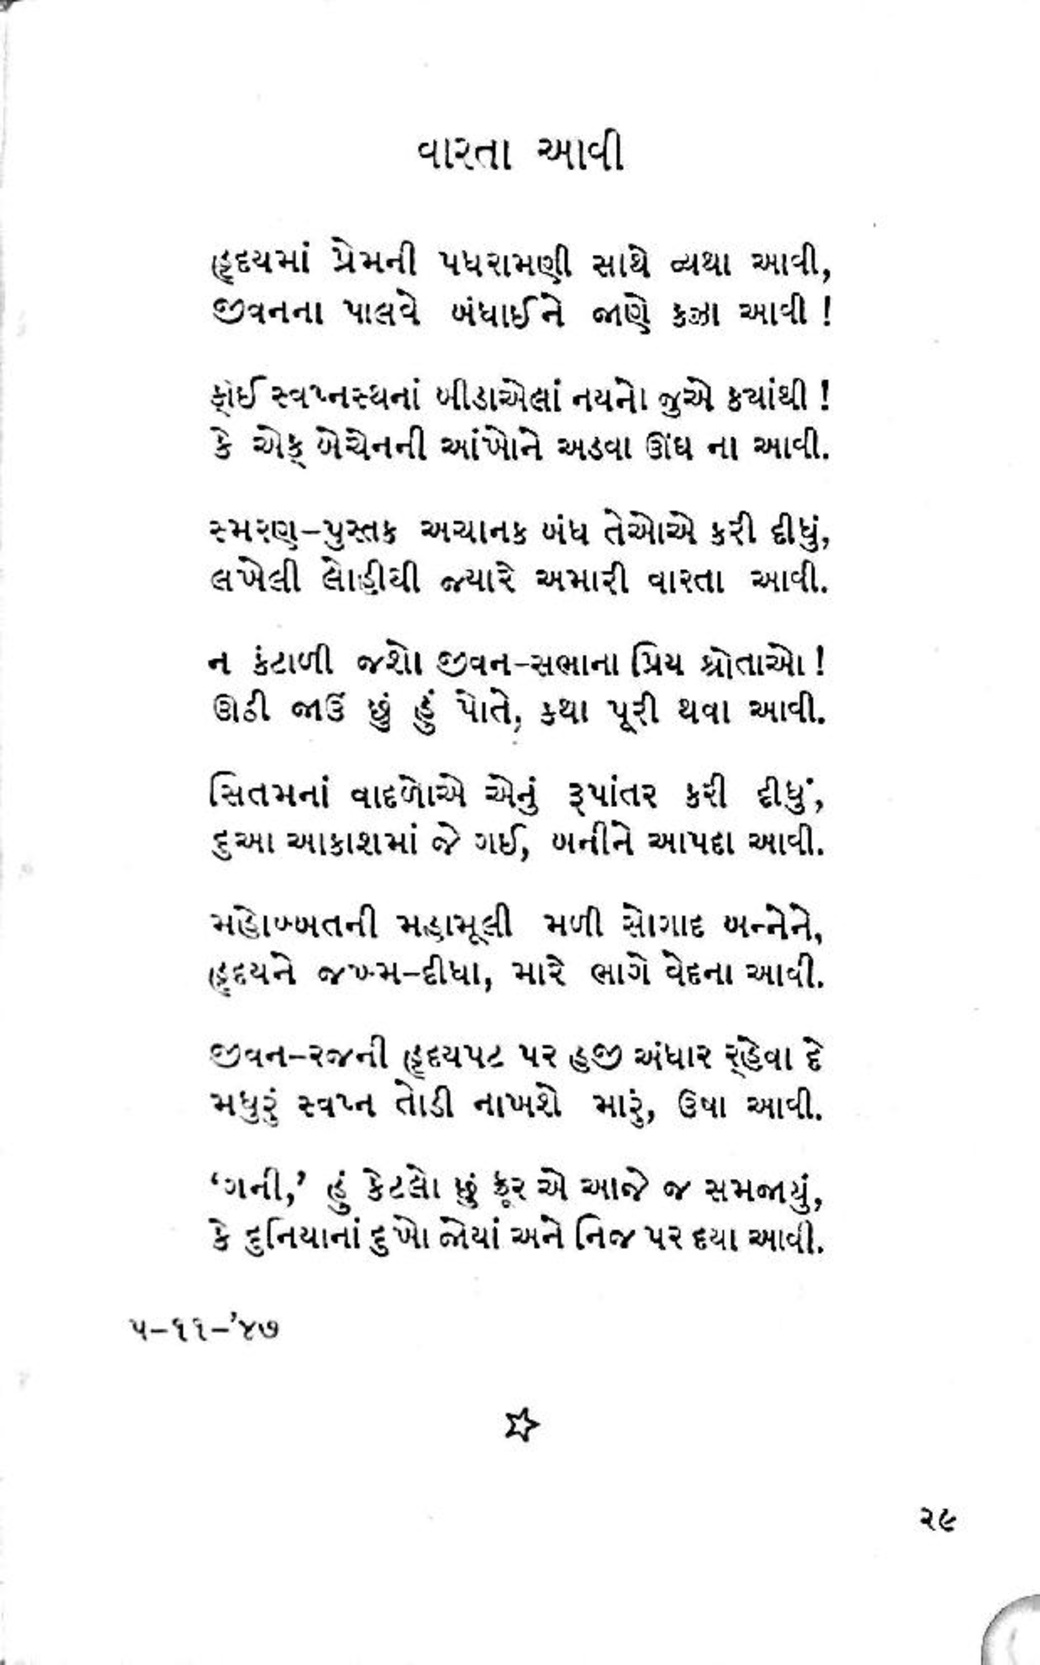 વારતા આવી
હૃદયમાં પ્રેમની પધરામણી સાથે વ્યથા આવી,
જીવનના પાલવે બંધાઈને જાણે કઝા આવી !
કોઈ સ્વપ્નસ્થનાં બીડાએલાં નયનો જુએ ક્યાંથી !
કે એક્ બેચેનની આંખોને અડવા ઊંઘ ના આવી.
સ્મરણ-પુસ્તક અચાનક બંધ તેઓએ કરી દીધું,
લખેલી લોહીથી જ્યારે અમારી વારતા આવી.
ન કંટાળી જશો જીવન-સભાના પ્રિય શ્રોતાઓ !
ઊઠી જાઉં છું હું પોતે, કથા પૂરી થવા આવી.
સિતમનાં વાદળોએ એનું રૂપાંતર કરી દીધું,
દુઆ આકાશમાં જે ગઈ, બનીને આપદા આવી.
મહોબ્બતની મહામૂલી મળી સોગાદ બન્નેને,
હૃદયને જખ્મ-દીધા, મારે ભાગે વેદના આવી.
જીવન-રજની હૃદયપટ પર હજી અંધાર ર્‌હેવા દે
મધુરું સ્વપ્ન તોડી નાખશે મારું, ઉષા આવી.
‘ગની,’ હું કેટલો છું ક્રૂર એ આજે જ સમજાયું,
કે દુનિયાનાં દુખો જોયાં અને નિજ પર દયા આવી.
૫-૧૧-’૪૭
૨૯